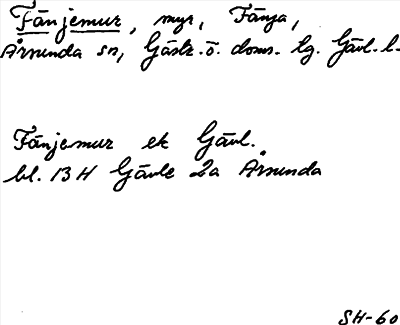 Fänjemur, myr, Fänja,
Årsunda sn, Gästr.ö. doms. lg. Gävl. l.
Fänjemur ek Gävl.
bl. 13 H Gävle 2a Årsunda
SH-60